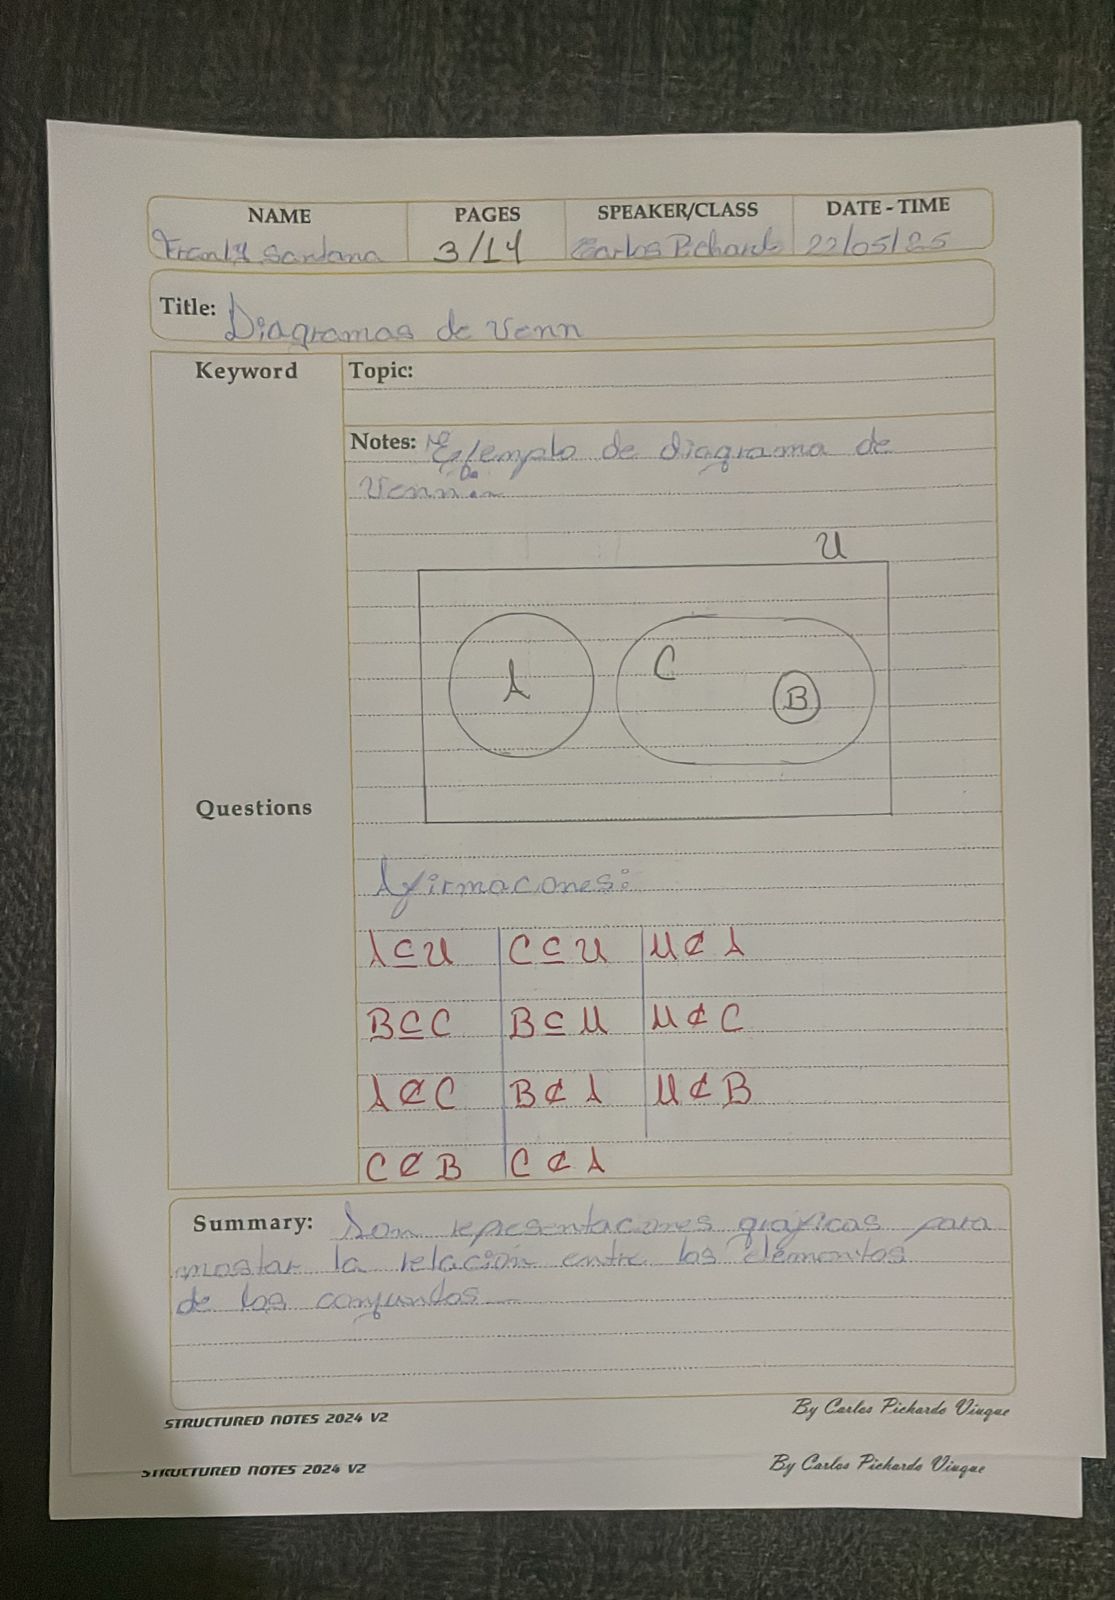 NAME PAGES SPEAKER/CLASS DATE-TIME
Franly Santana 3/14 Carlos Pichardo 22/05/25
Title: Diagramas de Venn
Keyword Topic:
Notes: Ejemplo de diagrama de
Venn
U
A C B
Questions
Afirmacones:
A ⊆ U C ⊆ U U ⊄ A
B ⊆ C B ⊆ U U ⊄ C
A ⊄ C B ⊄ A U ⊄ B
C ⊄ B C ⊄ A
Summary: Son representacones gráficas para
mostar la relación entre los elementos
de los conjuntos
STRUCTURED NOTES 2024 V2 By Carlos Pichardo Viuque
STRUCTURED NOTES 2024 V2 By Carlos Pichardo Viuque